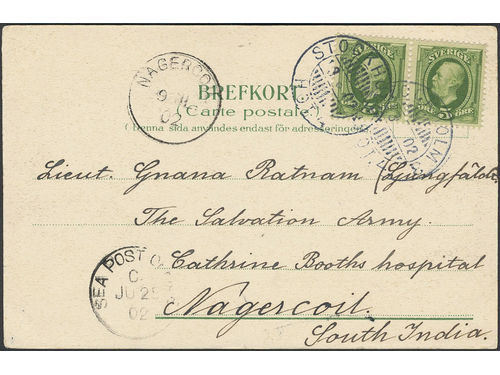 NAGERCOIL
9 JU
02
STOCKHOLM
02
SVERIGE SVERIGE
5 ÖRE
BREFKORT
Carte postale
(Denna sida användes endast för adresseringen.)
Lieut. Gnana Ratnam (Ljungfäldt)
The Salvation Army.
Cathrine Booths hospital
Nagercoil.
South India.
SEA POST O
JU 28
02